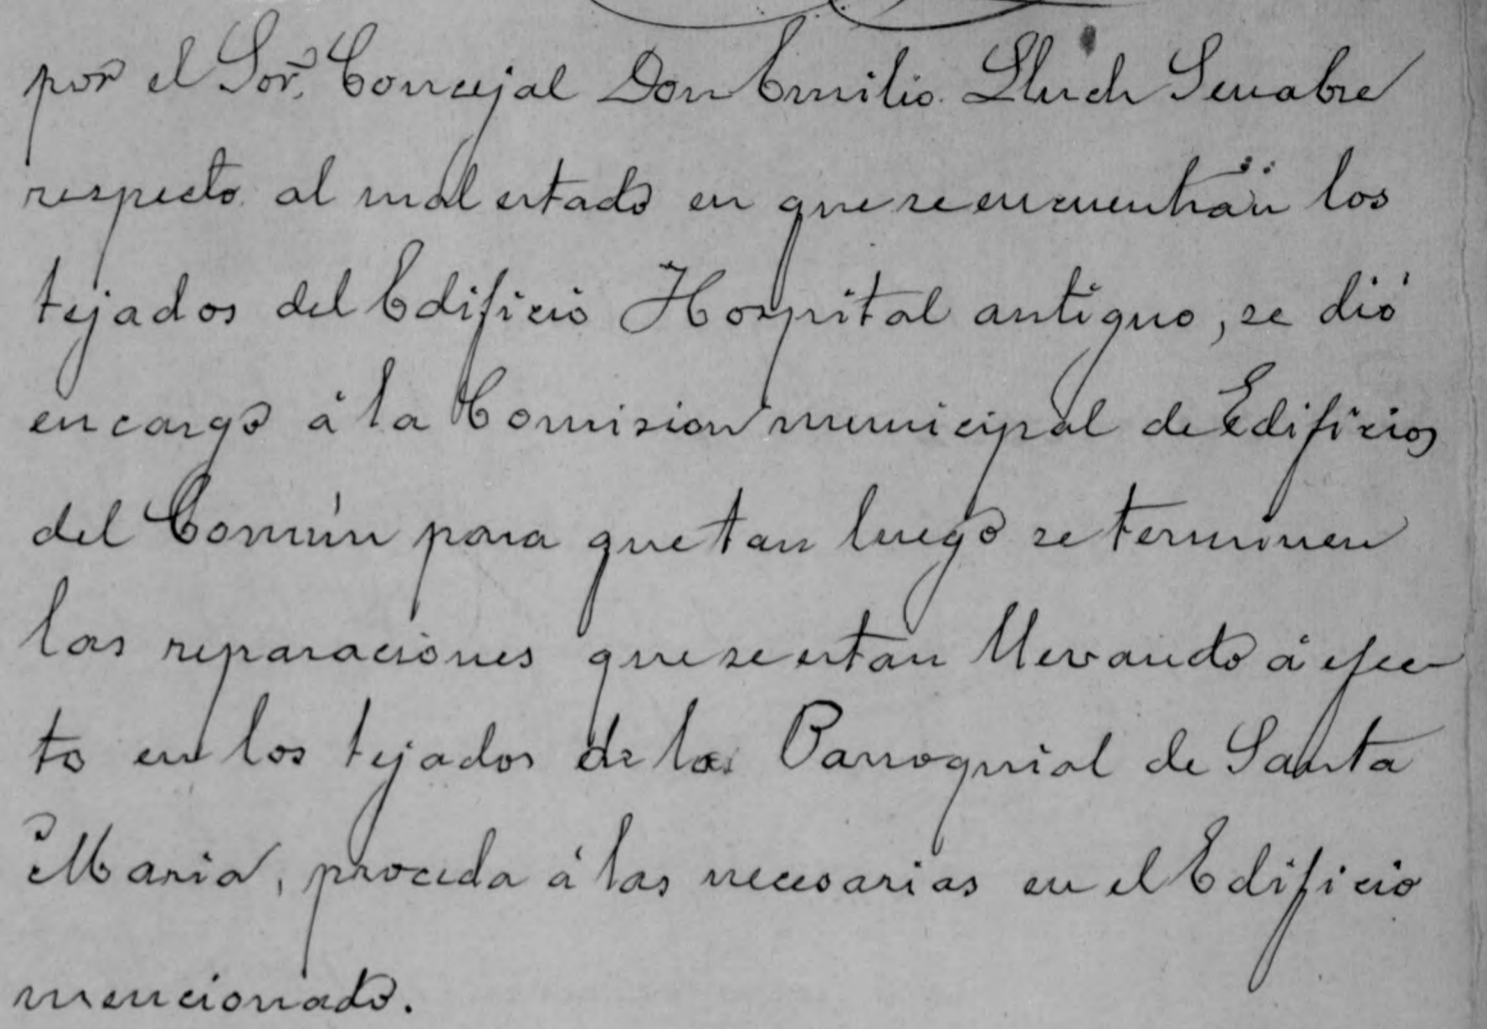 por el Sor. Concejal Don Emilio Lluch Senabre
respecto al mal estado en que se encuentran los
tejados del Edificio Hospital antiguo, se dió
encargo á la Comision municipal de Edificios
del Común para que tan luego se terminen
las reparaciones que se estan llevando á efec-
to en los tejados de la Parroquial de Santa
Maria, proceda á las necesarias en el Edificio
mencionado.